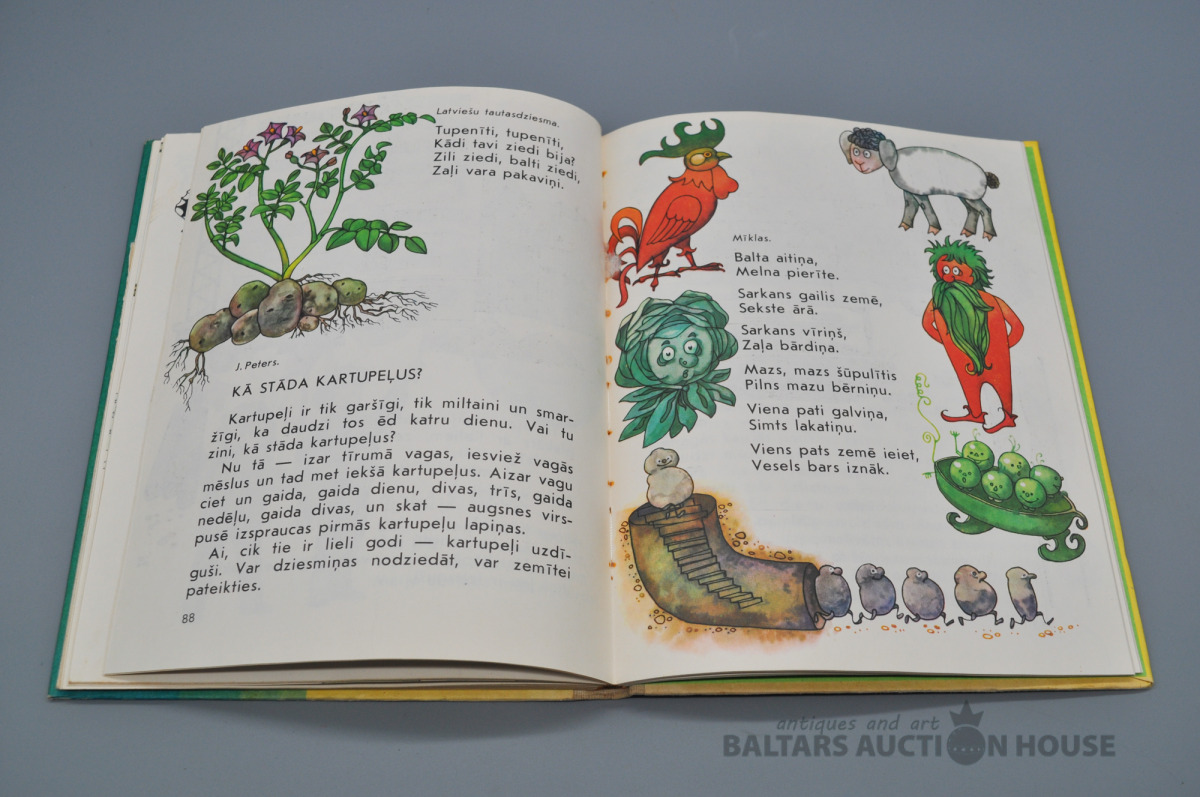 Latviešu tautasdziesma.
Tupenīti, tupenīti,
Kādi tavi ziedi bija?
Zili ziedi, balti ziedi,
Zaļi vara pakaviņi.
J. Peters.
KĀ STĀDA KARTUPEĻUS?
Kartupeļi ir tik garšīgi, tik miltaini un smar-
žīgi, ka daudzi tos ēd katru dienu. Vai tu
zini, kā stāda kartupeļus?
Nu tā — izar tīrumā vagas, iesviež vagās
mēslus un tad met iekšā kartupeļus. Aizar vagu
ciet un gaida, gaida dienu, divas, trīs, gaida
nedēļu, gaida divas, un skat — augsnes virs-
pusē izspraucas pirmās kartupeļu lapiņas.
Ai, cik tie ir lieli godi — kartupeļi uzdī-
guši. Var dziesmiņas nodziedāt, var zemītei
pateikties.
88
Mīklas.
Balta aitiņa,
Melna pierīte.
Sarkans gailis zemē,
Sekste ārā.
Sarkans vīriņš,
Zaļa bārdiņa.
Mazs, mazs šūpulītis
Pilns mazu bērniņu.
Viena pati galviņa,
Simts lakatiņu.
Viens pats zemē ieiet,
Vesels bars iznāk.
antiques and art
BALTARS AUCTION HOUSE